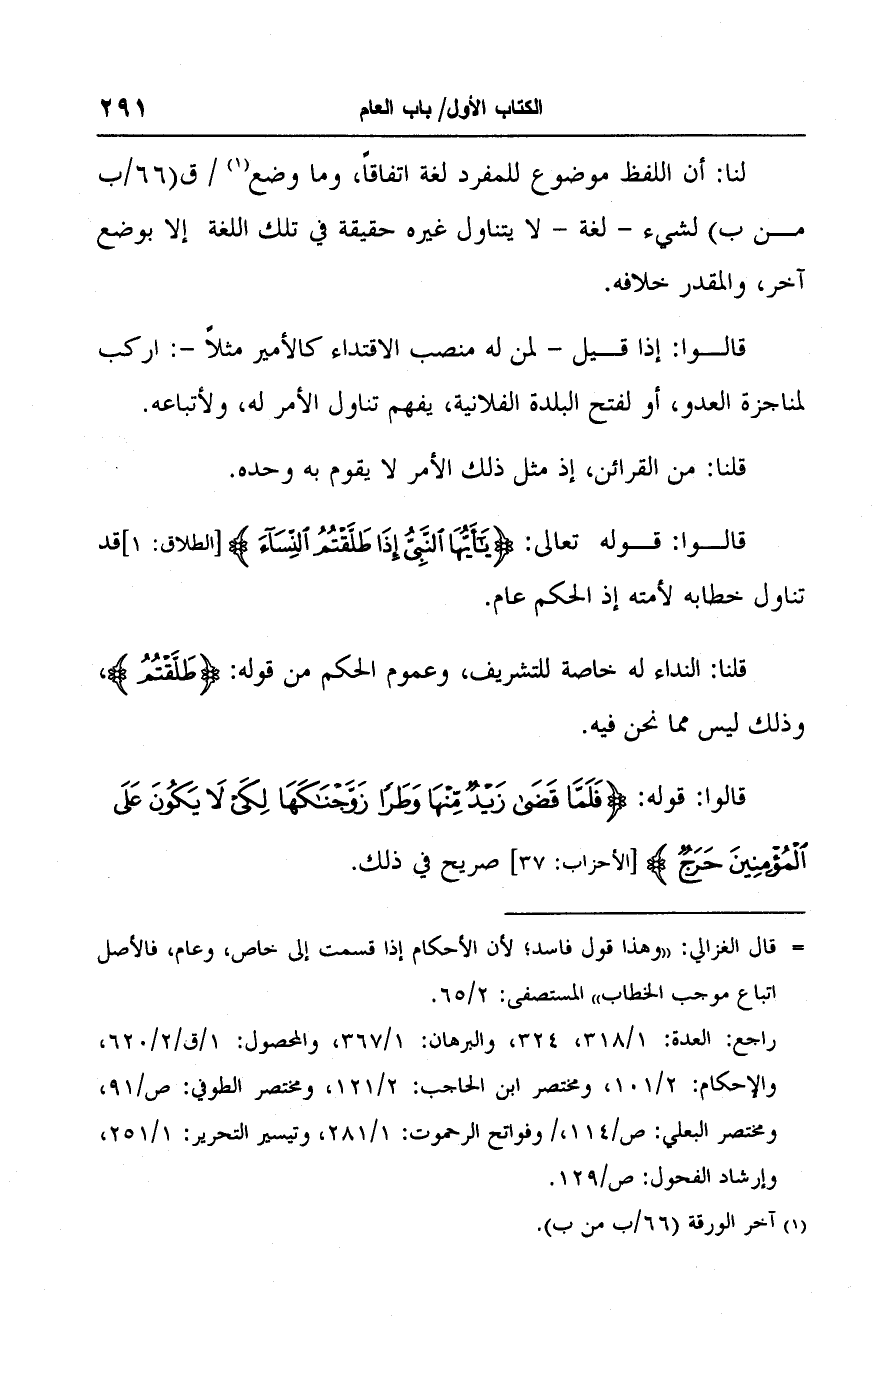 الكتاب الأول/ باب العام ٢٩١
لنا: أن اللفظ موضوع للمفرد لغة اتفاقاً، وما وضع(١) / ق(٦٦/ب
مـــن ب) لشيء - لغة - لا يتناول غيره حقيقة في تلك اللغة إلا بوضع
آخر، والمقدر خلافه.
قالـــوا: إذا قـــيل - لمن له منصب الاقتداء كالأمير مثلاً -: اركب
لمناجزة العدو، أو لفتح البلدة الفلانية، يفهم تناول الأمر له، ولأتباعه.
قلنا: من القرائن، إذ مثل ذلك الأمر لا يقوم به وحده.
قالـــوا: قـــوله تعالى: ﴿يَٰٓأَيُّهَا ٱلنَّبِيُّ إِذَا طَلَّقْتُمُ ٱلنِّسَآءَ﴾ [الطلاق: ١]قد
تناول خطابه لأمته إذ الحكم عام.
قلنا: النداء له خاصة للتشريف، وعموم الحكم من قوله: ﴿طَلَّقْتُمُ﴾،
وذلك ليس مما نحن فيه.
قالوا: قوله: ﴿فَلَمَّا قَضَىٰ زَيْدٌ مِّنْهَا وَطَرًا زَوَّجْنَٰكَهَا لِكَىْ لَا يَكُونَ عَلَى
ٱلْمُؤْمِنِينَ حَرَجٌ﴾ [الأحزاب: ٣٧] صريح في ذلك.
= قال الغزالي: «وهذا قول فاسد؛ لأن الأحكام إذا قسمت إلى خاص، وعام، فالأصل
اتباع موجب الخطاب» المستصفى: ٦٥/٢.
راجع: العدة: ٣١٨/١، ٣٢٤، والبرهان: ٣٦٧/١، والمحصول: ١/ق/٦٢٠/٢،
والإحكام: ١٠١/٢، ومختصر ابن الحاجب: ١٢١/٢، ومختصر الطوفي: ص/٩١،
ومختصر البعلي: ص/١١٤،/ وفواتح الرحموت: ٢٨١/١، وتيسير التحرير: ٢٥١/١،
وإرشاد الفحول: ص/١٢٩.
(١) آخر الورقة (٦٦/ب من ب).